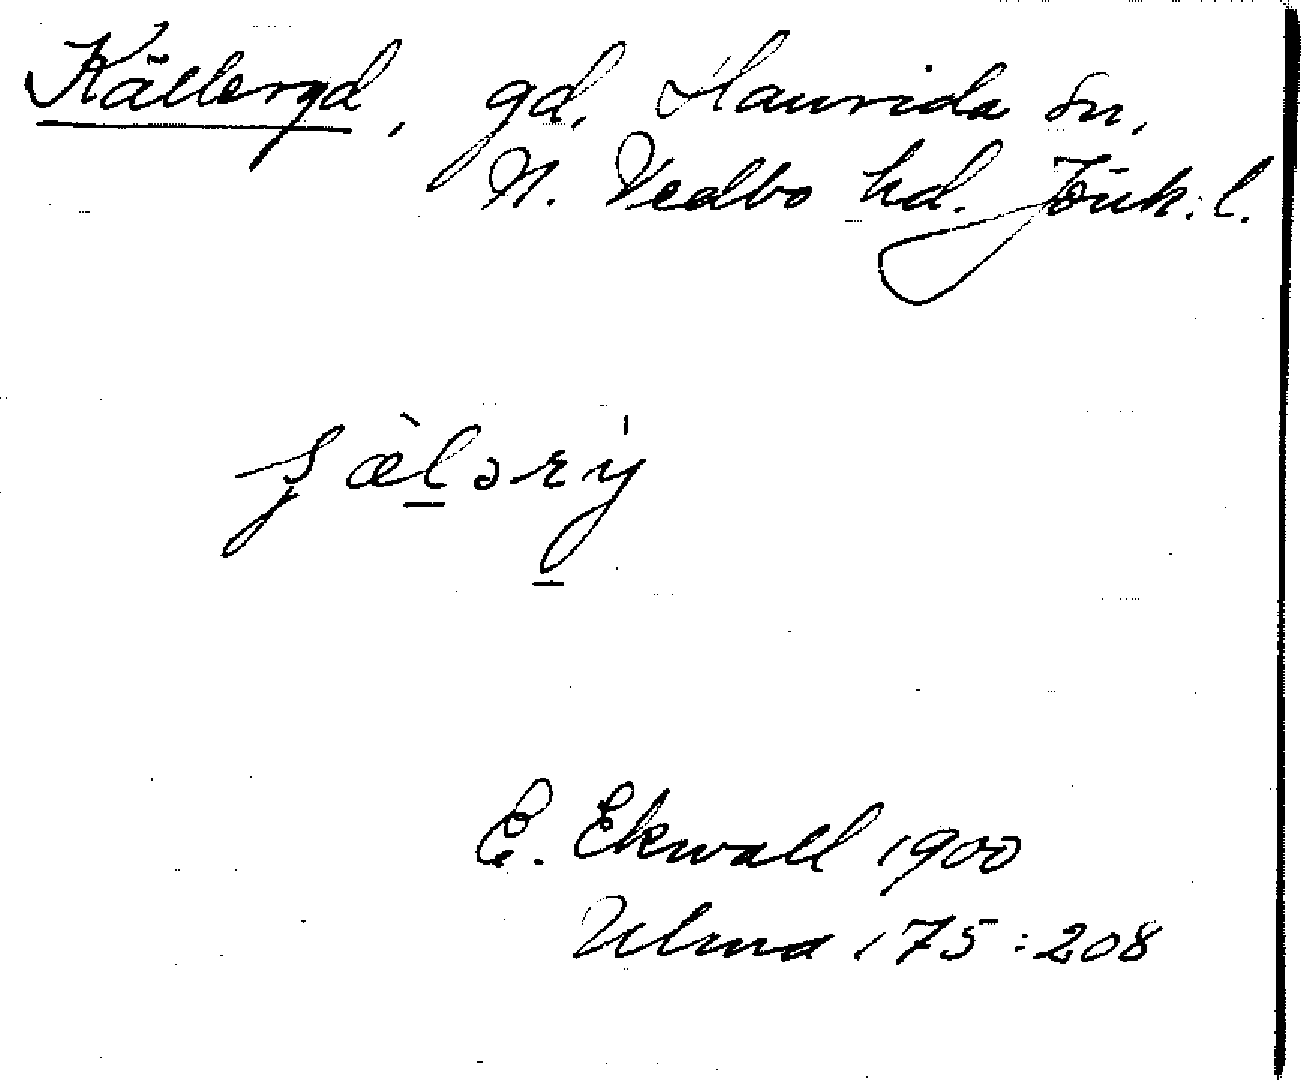 Källeryd, gd, Haurida sn,
N. Vedbo hd. Jönk. l.
E. Ekwall 1900
Ulma 175:208